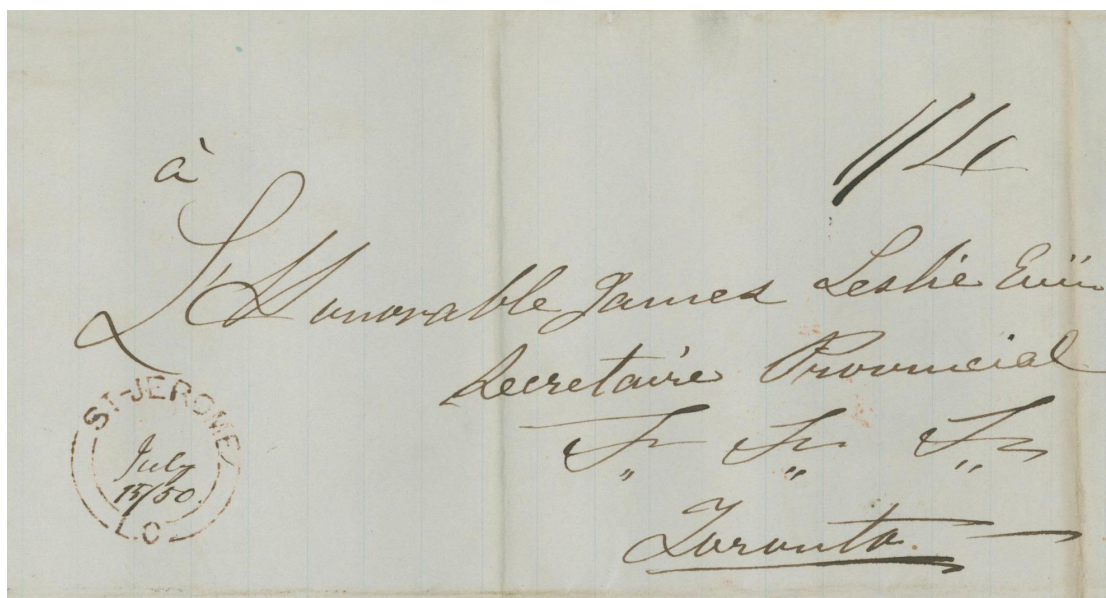 à
1/4
L'Honorable James Leslie
Secretaire Provincial
Toronto
ST JEROME
July
15/50
L.C